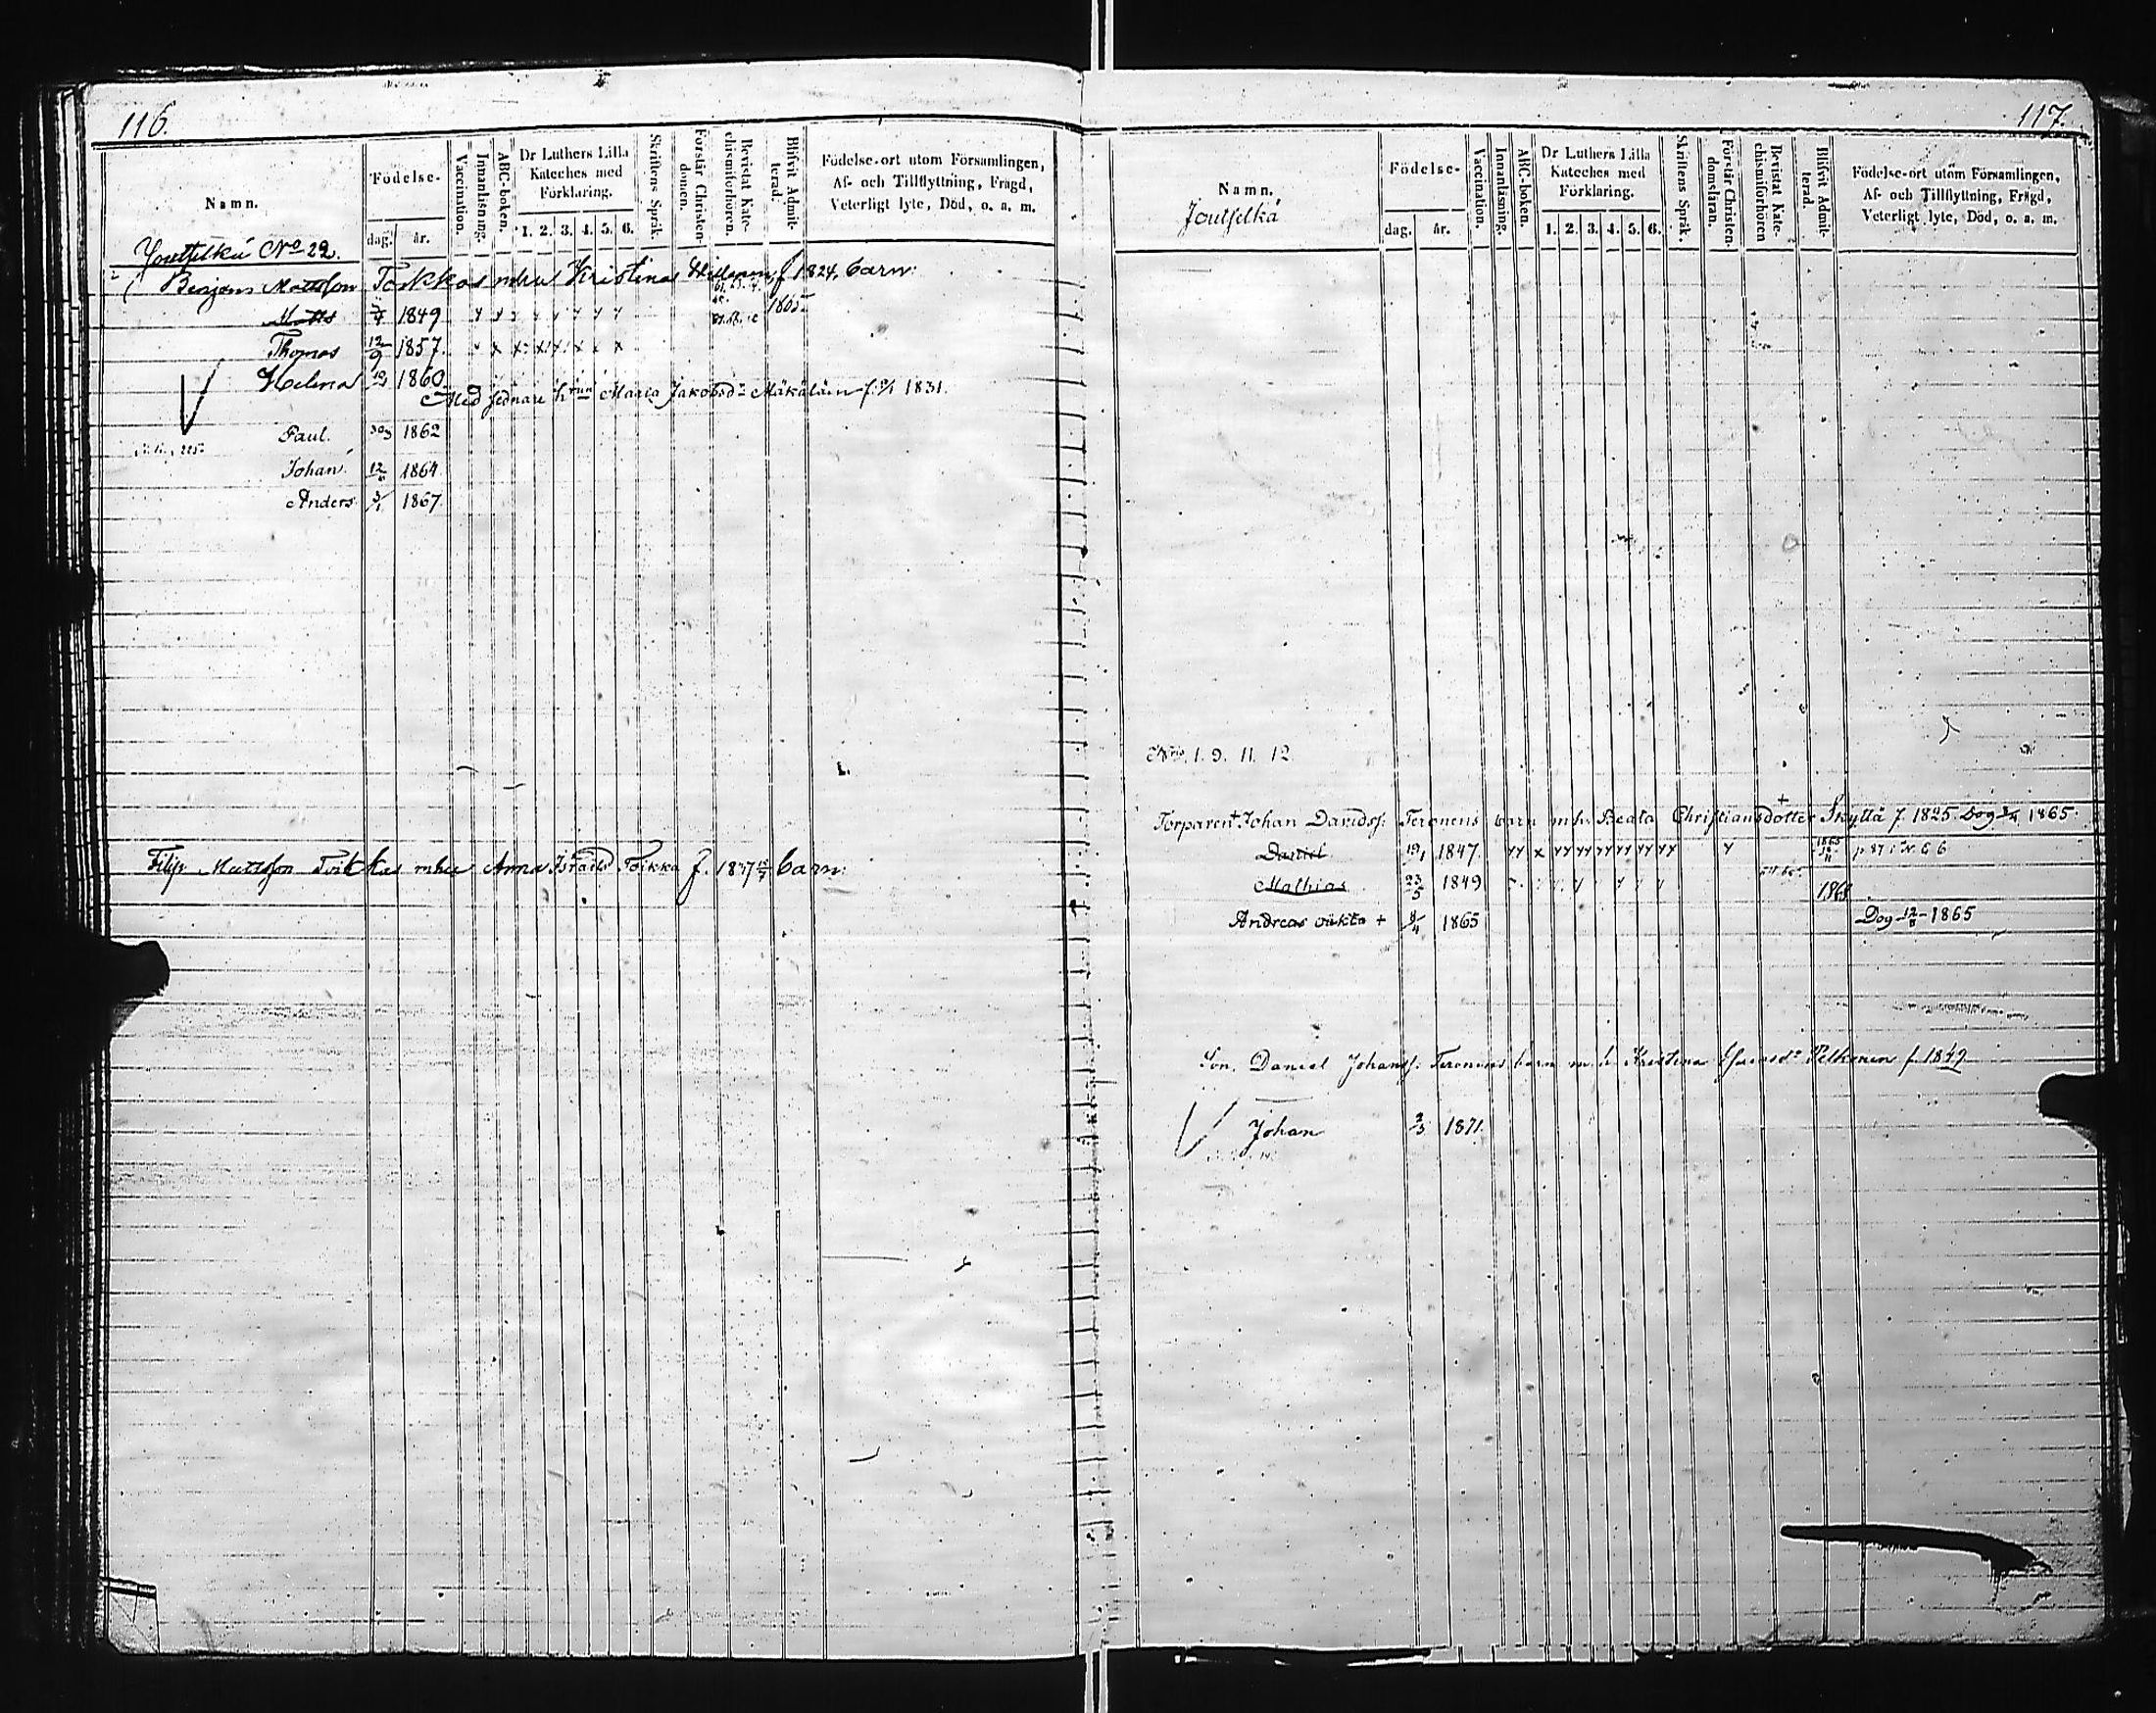 116.
Namn.
Födelse-
dag.
år.
Vaccination.
Innanläsning.
ABC-boken.
Dr Luthers Lilla
Kateches med
Förklaring.
1. 2. 3. 4. 5. 6.
Skriftens Språk.
Förstår Christen-
domen.
Bevistat Kate-
chismiförhören.
Blifvit Admit-
terad.
Födelse-ort utom Församlingen,
Af- och Tillflyttning, Frägd,
Veterligt lyte, Död, o. a. m.
Joutselkä No 22.
Benjam Mattsson Toikkas mhu Kristinas f 1824, barn:
Matts 1849 1865
Thomas 12/9 1857.
Helena 1860
Med sednare Maria Jakobsd Mäkäläin f. 1831.
Paul. 1862
Johan 1864
Anders 3/1 1867
Filip Mattsson Toikkas mhu Anna Toikka f. 1837 barn:
117
Namn.
Joutselkä
Födelse-
dag.
år.
Vaccination.
Innanläsning.
ABC-boken.
Dr Luthers Lilla
Kateches med
Förklaring.
1. 2. 3. 4. 5. 6.
Skriftens Språk.
Förstår Christen-
domsläran.
Bevistat Kate-
chismiförhören
Blifvit Admit-
terad.
Födelse-ort utom Församlingen,
Af- och Tillflyttning, Frägd,
Veterligt lyte, Död, o. a. m.
1. 9. 11. 12.
Torparen + Johan Davidss: Teronens barn mh. Beata Christiansdotter Skyttä f. 1825. Dog 1865.
Daniel 19/1 1847. 1865
Mathias 23/5 1849 1868
Andreas oäkta + 1865 Dog 1865
Son. Daniel Johanss: Teronens barn m. h. Kristina Pelkonen f. 1849
Johan 2/3 1871.